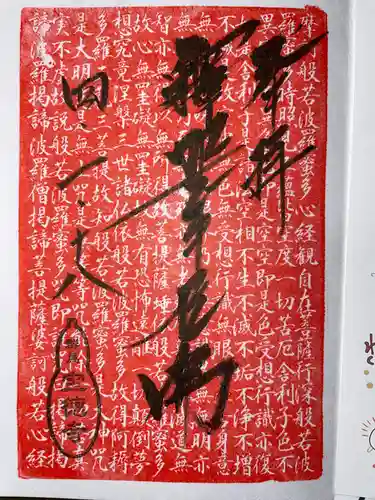 奉拝
四
一・十八
摩訶般若波羅蜜多心経観自在菩薩行深般若波
羅蜜多時照見五蘊皆空度一切苦厄舎利子色不
異空空不異色色即是空空即是色受想行識亦復
如是舎利子是諸法空相不生不滅不垢不浄不増
不減是故空中無色無受想行識無眼耳鼻舌身意
無色声香味触法無眼界乃至無意識界無無明亦
無無明尽乃至無老死亦無老死尽無苦集滅道無
智亦無得以無所得故菩提薩埵依般若波羅蜜多
故心無罣礙無罣礙故無有恐怖遠離一切顛倒夢
想究竟涅槃三世諸仏依般若波羅蜜多故得阿耨
多羅三藐三菩提故知般若波羅蜜多是大神呪
是大明呪是無上呪是無等等呪能除一切苦真
実不虚故説般若波羅蜜多呪即説呪曰羯諦羯
諦波羅羯諦波羅僧羯諦菩提薩婆訶般若心経